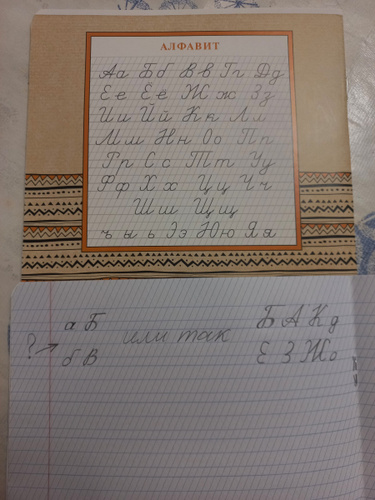 АЛФАВИТ
Аа Бб Вв Гг Дд
Ее Ёё Жж Зз
Ии Йй Кк Лл
Мм Нн Оо Пп
Рр Сс Тт Уу
Фф Хх Цц Чч
Шш Щщ
ъ ы ь Ээ Юю Яя
а Б или так Б А К д
? → б В Е З Ж о